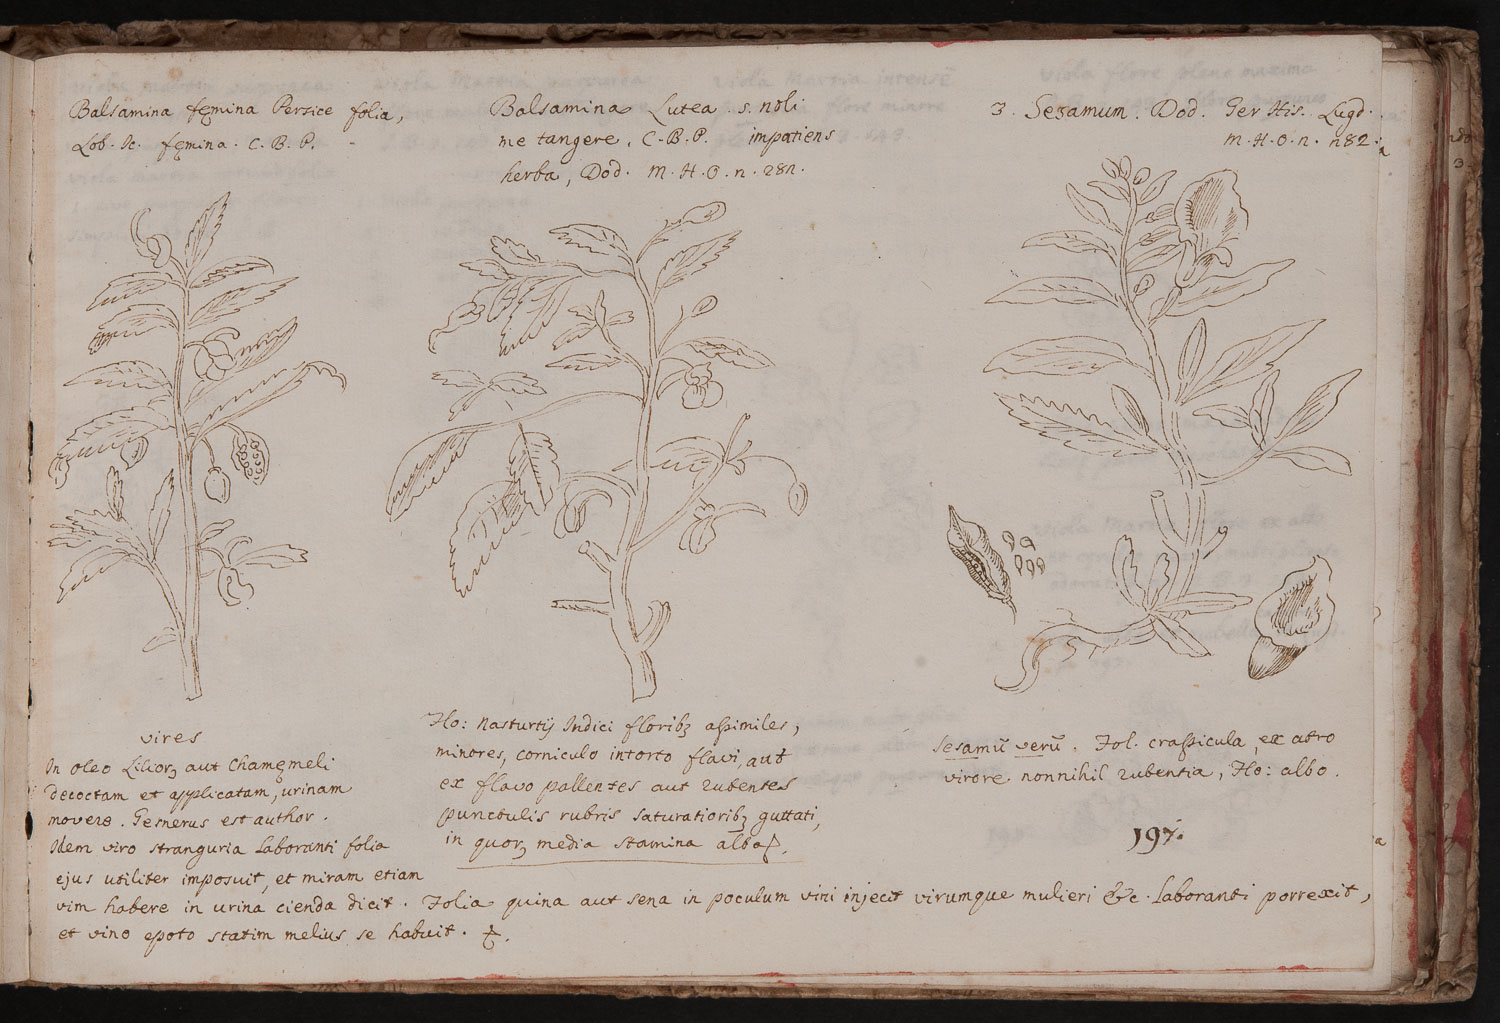 Balsamina fęmina Persice folia,
Lob. Ic. fęmina. C. B. P.
Balsamina Lutea s. noli
me tangere, C. B. P. impatiens
herba, Dod. M. H. O. n. 281.
3. Sesamum. Dod. Ger His. Lugd.
M. H. O. n. 182.
vires
In oleo Lilior̨ aut Chamęmeli
decoctam et applicatam, urinam
movere. Gesnerus est author.
Idem viro stranguria laboranti folia
ejus utiliter imposuit, et miram etiam
vim habere in urina cienda dicit. Folia quina aut sena in poculum vini injecit virumque mulieri &c. laboranti porrexit,
et vino epoto statim melius se habuit.
Flo: Nasturtij Indici floribȝ assimiles,
minores, corniculo intorto flavi, aut
ex flavo pallentes aut rubentes
punctulis rubris saturatioribȝ guttati,
in quor̨ media stamina alba
Sesamū verū. Fol. crassicula, ex atro
virore nonnihil rubentia, Flo: albo.
197.